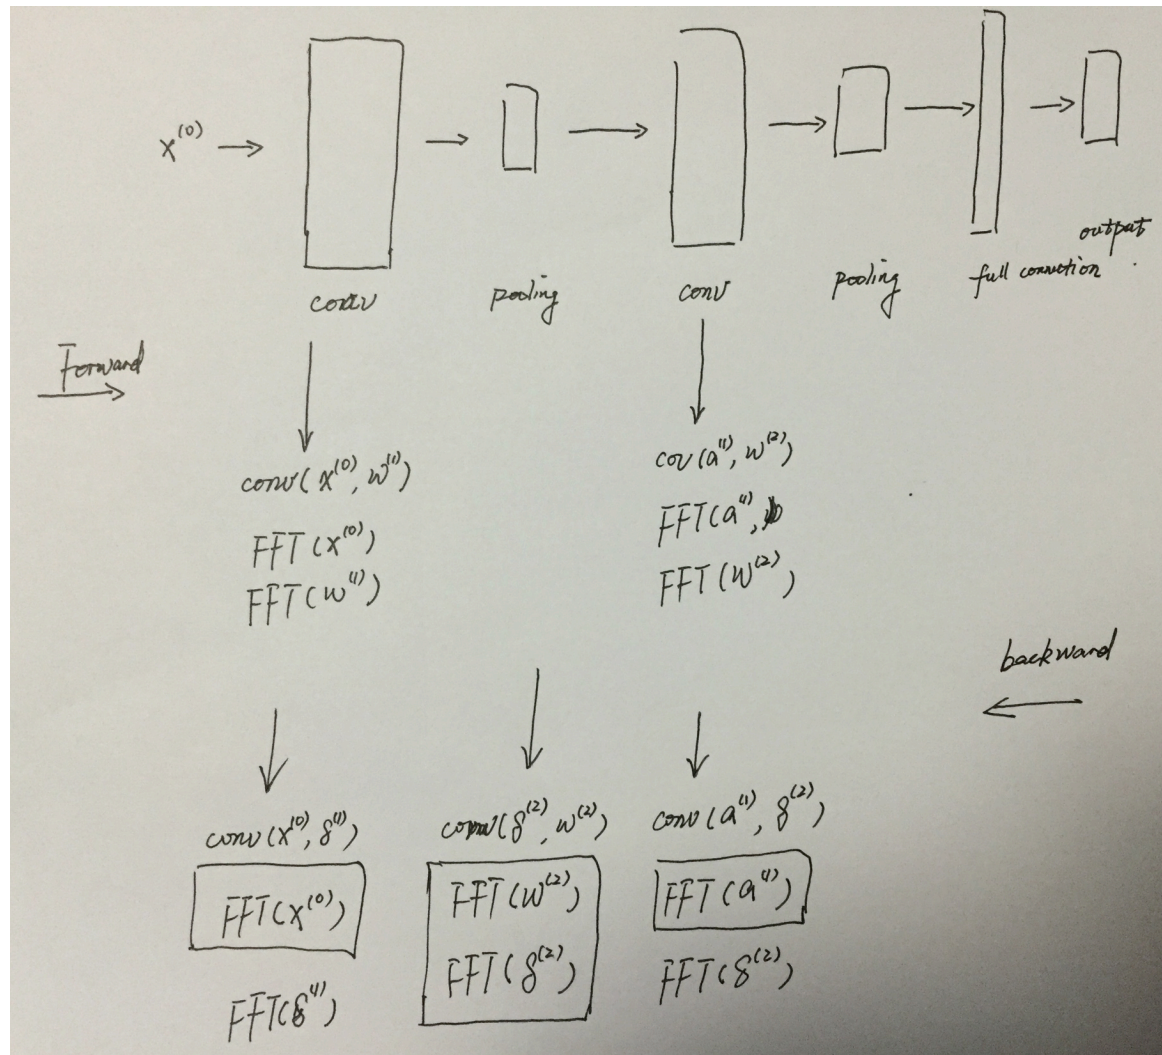 x^(0)
conv
pooling
conv
pooling
full connection
output
Forward
conv(x^(0), w^(1))
FFT(x^(0))
FFT(w^(1))
cov(a^(1), w^(2))
FFT(a^(1),
FFT(W^(2))
backward
conv(x^(0), δ^(1))
FFT(x^(0))
FFT(δ^(1))
conv(δ^(2), w^(2))
FFT(W^(2))
FFT(δ^(2))
conv(a^(1), δ^(2))
FFT(a^(1))
FFT(δ^(2))